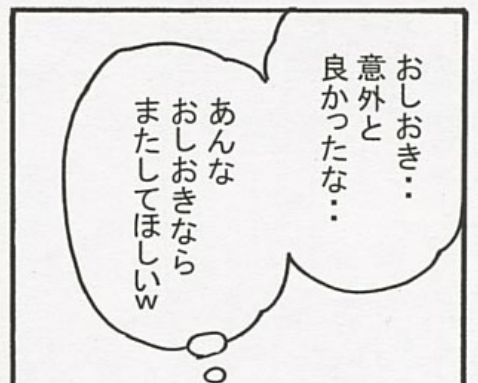 おしおき・・
意外と
良かったな・・
あんな
おしおきなら
またしてほしいw